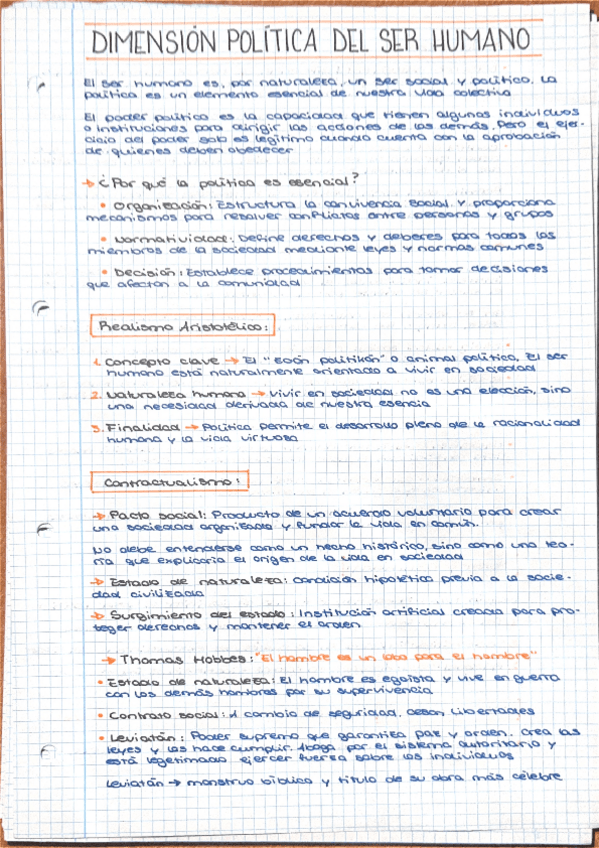 DIMENSIÓN POLÍTICA DEL SER HUMANO
El ser humano es, por naturaleza, un ser social y político. La
política es un elemento esencial de nuestra vida colectiva
El poder político es la capacidad que tienen algunos individuos
o instituciones para dirigir las acciones de los demás. Pero el ejer-
cicio del poder solo es legítimo cuando cuenta con la aprobación
de quienes deben obedecer
→ ¿Por qué la política es esencial?
• Organización: Estructura la convivencia social y proporciona
mecanismos para resolver conflictos entre personas y grupos
• Normatividad: Define derechos y deberes para todos los
miembros de la sociedad mediante leyes y normas comunes
• Decisión: Establece procedimientos para tomar decisiones
que afectan a la comunidad
Realismo Aristotélico:
1. Concepto clave → El "zoón politikón" o animal político. El ser
humano está naturalmente orientado a vivir en sociedad
2. Naturaleza humana → Vivir en sociedad no es una elección, sino
una necesidad derivada de nuestra esencia
3. Finalidad → Política permite el desarrollo pleno de la racionalidad
humana y la vida virtuosa
Contractualismo:
→ Pacto social: Producto de un acuerdo voluntario para crear
una sociedad organizada y fundar la vida en común.
No debe entenderse como un hecho histórico, sino como una teo-
ría que explicaría el origen de la vida en sociedad
→ Estado de naturaleza: Condición hipotética previa a la socie-
dad civilizada
→ Surgimiento del estado: Institución artificial creada para pro-
teger derechos y mantener el orden
→ Thomas Hobbes: "El hombre es un lobo para el hombre"
• Estado de naturaleza: El hombre es egoísta y vive en guerra
con los demás hombres por su supervivencia
• Contrato social: A cambio de seguridad, ceden libertades
• Leviatán: Poder supremo que garantiza paz y orden. Crea las
leyes y las hace cumplir. Aboga por el sistema autoritario y
está legitimado ejercer fuerza sobre los individuos
Leviatán → monstruo bíblico y título de su obra más célebre